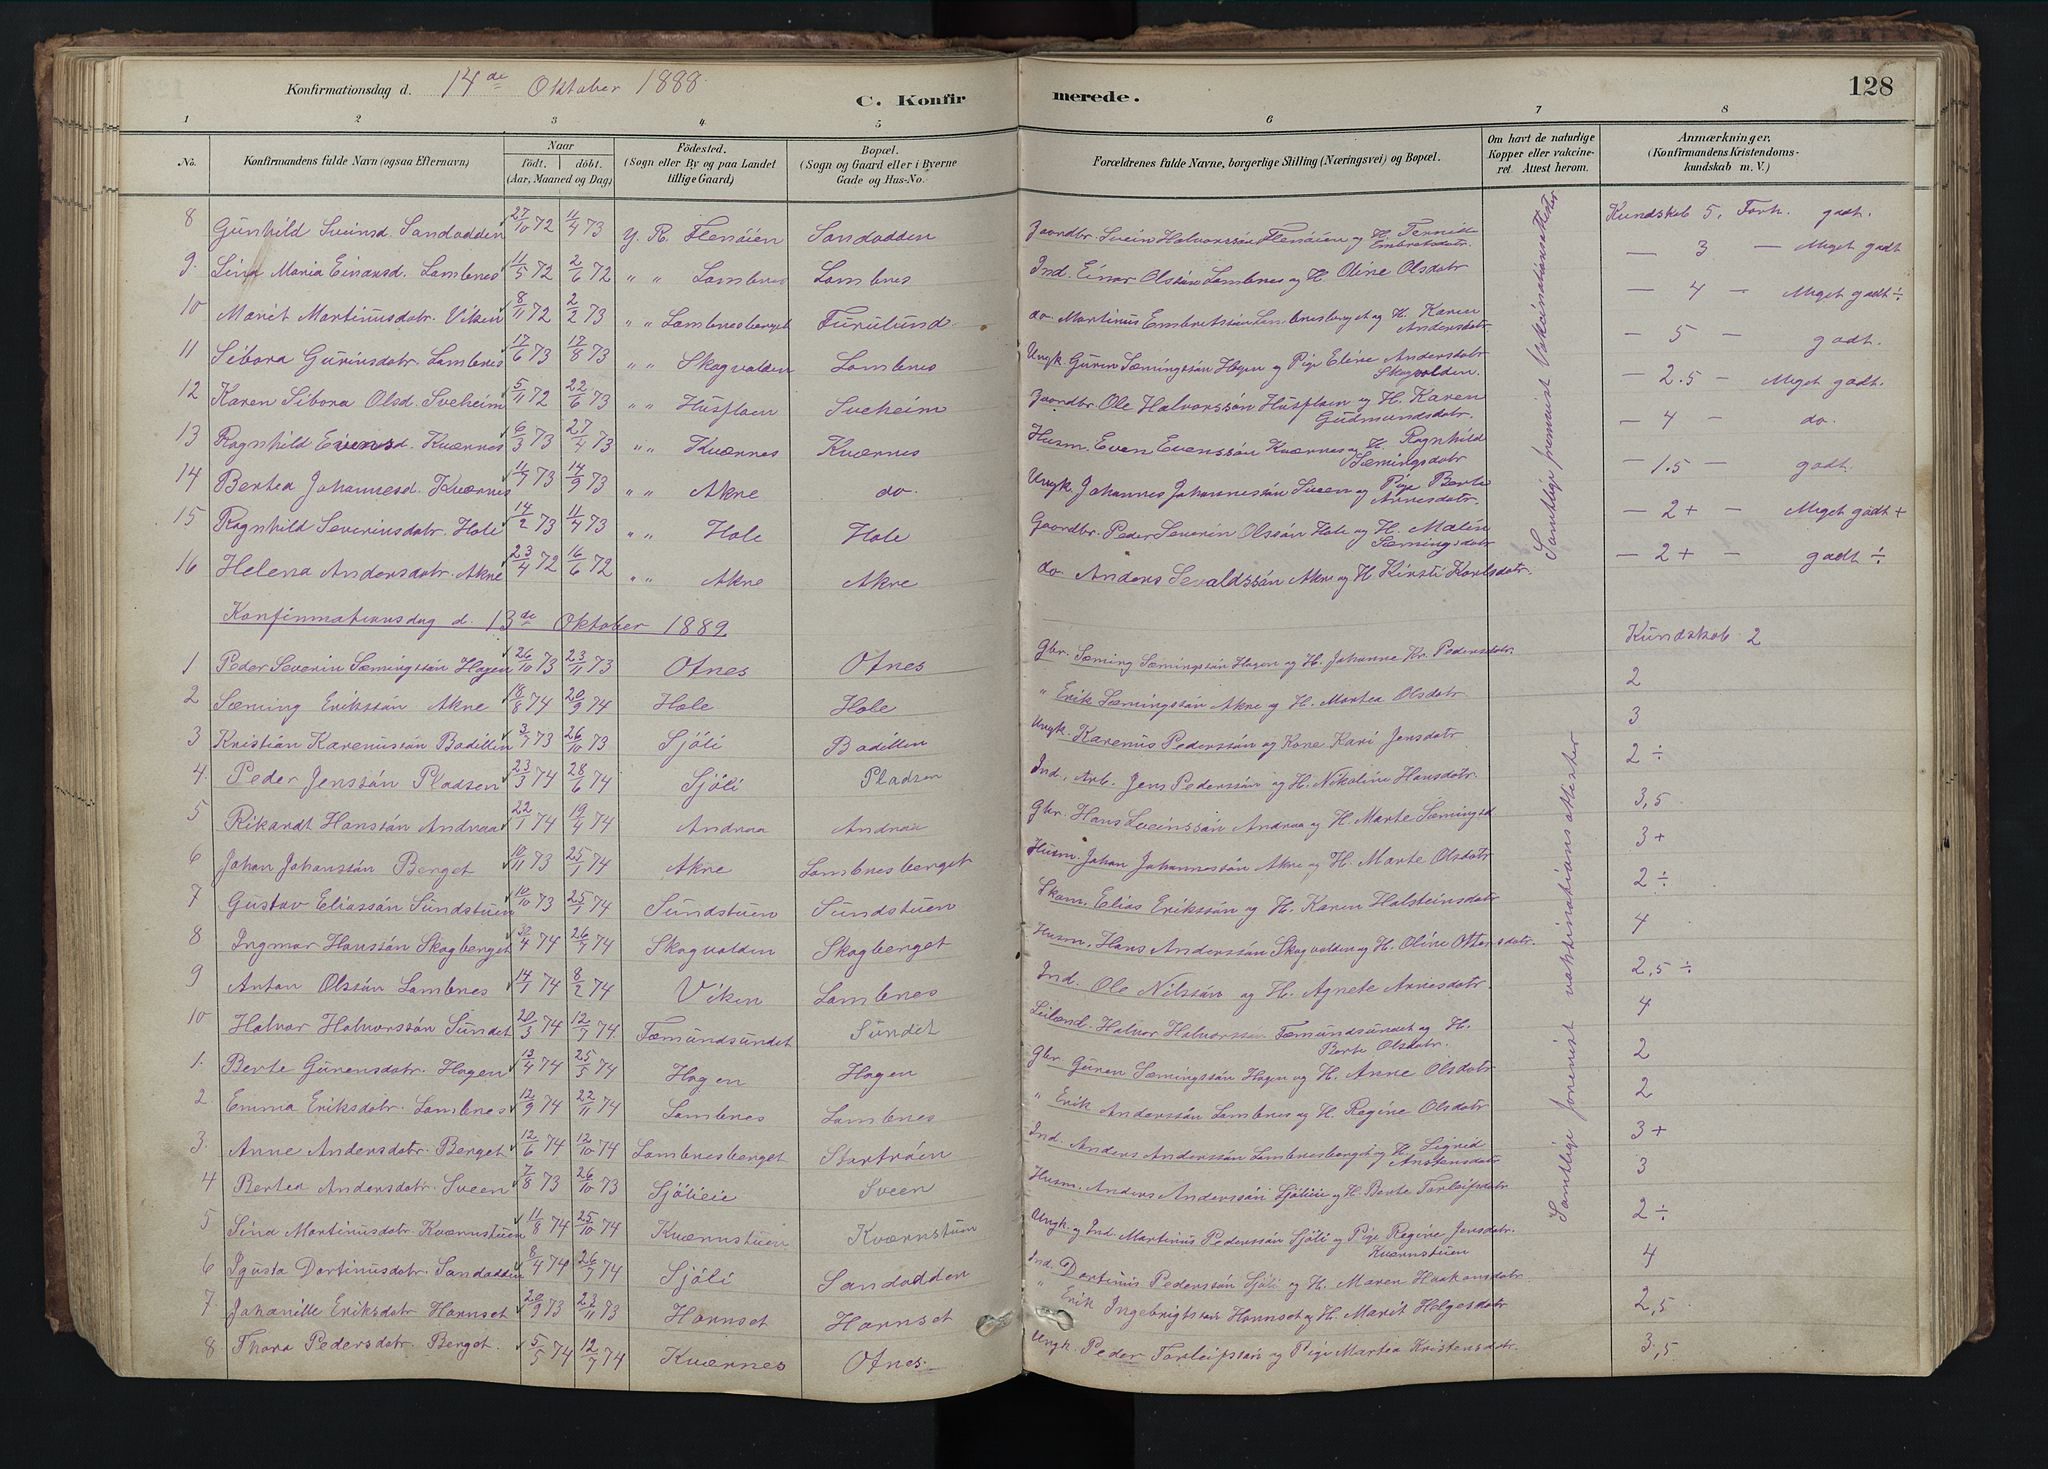 Konfirmationsdag d. 14de Oktober 1888.
C. Konfirmerede.
128
1 2 3 4 5 6 7 8
No. Konfirmandens fulde Navn (ogsaa Efternavn) Naar født. døbt. (Aar, Maaned og Dag) Fødested. (Sogn eller By og paa Landet tillige Gaard) Bopæl. (Sogn og Gaard eller i Byerne Gade og Hus-No. Forældrenes fulde Navne, borgerlige Stilling (Næringsvei) og Bopæl. Om havt de naturlige Kopper eller vaccineret. Attest herom. Anmærkninger. (Konfirmandens Kristendomskundskab m. V.)
8 Gunhild Sveinsd Sandodden 27/10 72 11/4 73 Y. R. Flenøien Sandodden Gaardbr. Svein Halvorssøn Flenøien og H. Embretsdatr. Kundskab 5. Forh. godt.
9. Sina Maria Einarsd. Lombnes 11/5 72 2/6 72 " " Lombnes Lombnes Ind. Einar Olssøn Lombnes og H. Oline Olsdatr — 3 — Meget godt
10 Marit Martinusdatr. Viken 8/11 72 2/2 73 " " Lombnesberget Furulund. do. Martinus Embretssøn Lombnesberget og H. Karen Andersdatr — 4 — Meget godt ÷
11 Sibora Gurinsdatr. Lombnes 17/6 73 17/8 73 " " Skogvolden Lombnes Ungk. Guren Sæmingssøn Hagen og Pige Eline Andersdatr Skogvolden. — 5 — godt.
12 Karen Sibora Olsd. Sveheim 5/11 72 22/6 73 " " Husfloen Sveheim Gaardbr. Ole Halvorssøn Husfloen og H. Karen Gudmundsdatr. — 2.5 — Meget godt.
13 Ragnhild Evensd. Kværnes 6/3 73 27/4 73 " " Kværnes Kværnes Husm. Even Evenssøn Kværnes og H. Ragnhild Sæmingsdatr — 4 — do.
14 Bertea Johannesd. Kværnes 11/7 73 14/9 73 " " Akre do. Ungk. Johannes Johannessøn Sveen og Pige Berte Arnesdatr. — 1.5 — godt.
15 Ragnhild Severinsdatr. Hole 14/2 73 11/4 73 " " Hole Hole Gaardbr. Peder Severin Olssøn Hole og H. Malin Sæmingsdatr — 2+ — Meget godt +
16 Helena Andersdatr. Akre 23/4 72 16/6 72 " " Akre Akre do Anders Sevaldssøn Akre og H Kirsti Karlsdatr. — 2+ — godt ÷
Samtlige fremvist Vakcinationsattester
Konfirmationsdag d. 13de Oktober 1889.
1 Peder Severin Sæmingssøn Hagen 26/10 73 23/11 73 Otnes Otnes Gbr. Sæming Sæmingssøn Hagen og H. Johanne Kr. Pedersdatr. Kundskab 2
2 Sæming Erikssøn Akre 18/8 74 20/9 74 Hole Hole " Erik Sæmingssøn Akre og H. Martea Olsdatr 2
3 Kristian Karenussøn Bodillen 3/7 73 26/10 73 Sjöli Bodillen Ungk. Karenus Pederssøn og Kone Kari Jensdatr 3
4. Peder Jenssøn Pladsen 23/3 74 28/6 74 Sjöli Pladsen Ind., Arb. Jens Pederssøn og H. Nikoline Hansdatr. 2 ÷
5 Rikardt Hanssøn Andraa 22/1 74 19/4 74 Andraa Andraa Gbr. Hans Sveinssøn Andraa og H. Marte Sæmingsd 3,5
6 Johan Johanssøn Berget 10/11 73 25/1 74 Akre Lombnesberget Husm. Johan Johannessøn Akre og H. Marte Olsdatr 3+
7 Gustav Eliassøn Sundstuen 10/10 73 25/1 74 Sundstuen Sundstuen Skom. Elias Erikssøn og H. Karen Halsteinsdatr 2 ÷
8 Ingmar Hanssøn Skogberget 30/4 74 26/7 74 Skogvolden Skogberget Husm. Hans Anderssøn Skogvolden og H. Oline Ottersdatr. 4
9 Anton Olssøn Lombnes 14/1 74 8/2 74 Viken Lombnes Ind. Ole Nilssøn og H. Agnete Arnesdatr. 2,5 ÷
10 Halvor Halvorssøn Sundet 20/3 74 12/7 74. Fæmundsundet Sundet Leilænd. Halvor Halvorssøn Fæmundsundet og H. Berte Olsdatr. 4
1. Berte Gurensdatr. Hagen 13/4 74 25/5 74 Hagen Hagen Gbr Guren Sæmingssøn Hagen og H. Anne Olsdatr 2
2. Emma Eriksdatr. Lombnes 12/9 74 22/11 74 Lombnes Lombnes " Erik Anderssøn Lombnes og H. Regine Olsdatr 2
3. Anne Andersdatr. Berget 12/6 74 12/10 74 Lombnesberget Startröen Ind. Anders Anderssøn Lombnesberget og H. Sigrid Anstensdatr 3+
4 Bertea Andersdatr Sveen 7/8 73 26/10 73 Sjölieie Sveen Husm. Anders Anderssøn Sjölieie og H. Berte Torleifsdatr 3
5 Sina Martinusdatr. Kværnstuen 11/8 74 25/10 74 Kværnstuen Kværnstuen Ungk. og Ind. Martinus Pederssøn Sjöli og Pige Regine Jensdatr. Kværnstuen 2 ÷
6 Igusta Dortinusdatr. Sandodden 8/4 74 26/7 74 Sjöli Sandodden Ind. Dortinus Pederssøn Sjöli og H. Maren Haakonsdatr 4
7. Johanitte Eriksdatr Hornset 20/9 73 23/11 73 Hornset Hornset " Erik Ingebrigtssøn Hornset og H. Marit Helgesdatr 2,5
8. Thora Pedersdatr. Berget. 5/5 74 12/7 74 Kværnes Otnes. Ungk. Peder Torleifssøn og Pige Martea Kristensdatr. 3,5
Samtlige forevist vakcinationsattester